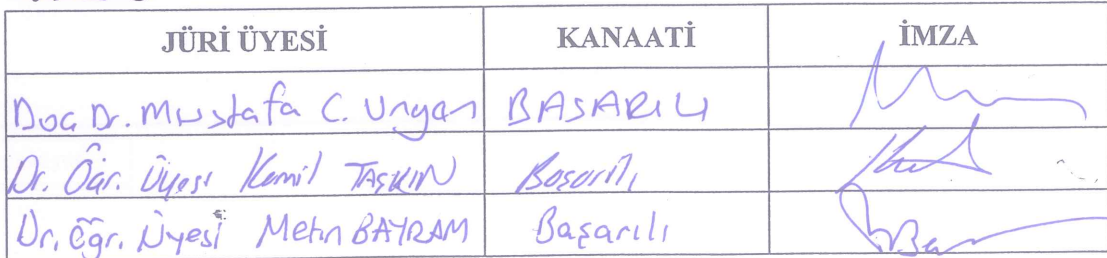 JÜRİ ÜYESİ KANAATİ İMZA
Doç Dr. Mustafa C. Unyan BAŞARILI
Dr. Öğr. Üyesi Kamil TAŞKIN Başarılı
Dr. Öğr. Üyesi Metin BAYRAM Başarılı